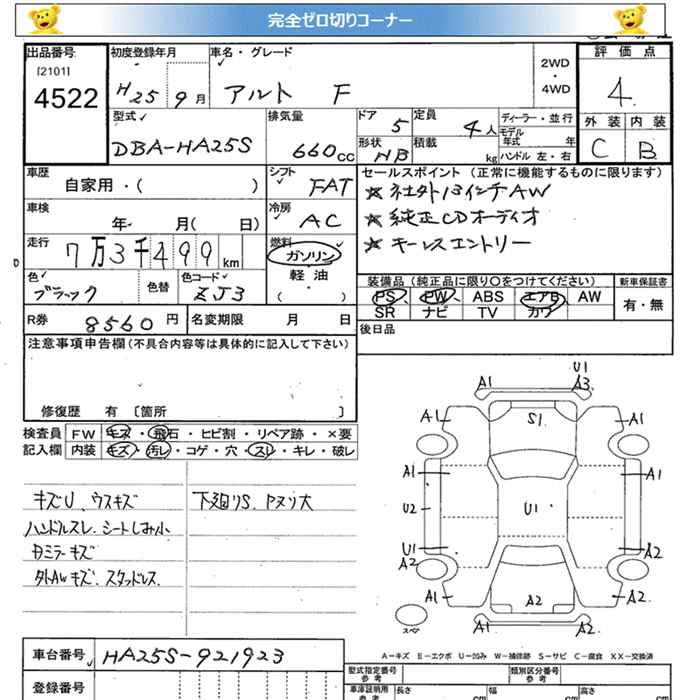 完全ゼロ切りコーナー
出品番号
[2101]
4522
初度登録年月
H25 9月
車名・グレード
アルト F
2WD
・
4WD
評価点
4
外装 内装
C B
型式
DBA-HA25S
排気量
660cc
ドア
5
形状
HB
定員
4人
積載
kg
ディーラー・並行
モデル年式 年
ハンドル 左・右
車歴
自家用・( )
シフト
FAT
車検
年 月( 日)
冷房
AC
走行
7万3千499km
燃料
ガソリン
・
軽油
( ・ )
色
ブラック
色替
色コード
ZJ3
R券 8560円
名変期限 月 日
セールスポイント(正常に機能するものに限ります)
☆社外13インチAW
☆純正CDオーディオ
☆キーレスエントリー
装備品(純正品に限り〇をつけてください)
PS PW ABS エアB AW
SR ナビ TV カワ
新車保証書
有・無
後日品
注意事項申告欄(不具合内容等は具体的に記入して下さい)
修復歴 有〔箇所 〕
検査員記入欄
FW キズ・飛石・ヒビ割・リペア跡・×要
内装 キズ・汚レ・コゲ・穴・スレ・キレ・破レ
キズU、ウスキズ
ハンドルスレ、シートしみ小
外AWキズ、スタッドレス
下廻りS
U1
A1 A3
A1 S1 A1
A1 A1
U2 U1
U1 A2
A2
A1 A2 A2
A1 A2
スペア
A-キズ E-エクボ U-凹み W-補修跡 S-サビ C-腐食 XX-交換済
車台番号 HA25S-921923
登録番号
型式指定番号
参考
類別区分番号
参考
車庫証明用
参考
長さ cm
幅 cm
高さ cm